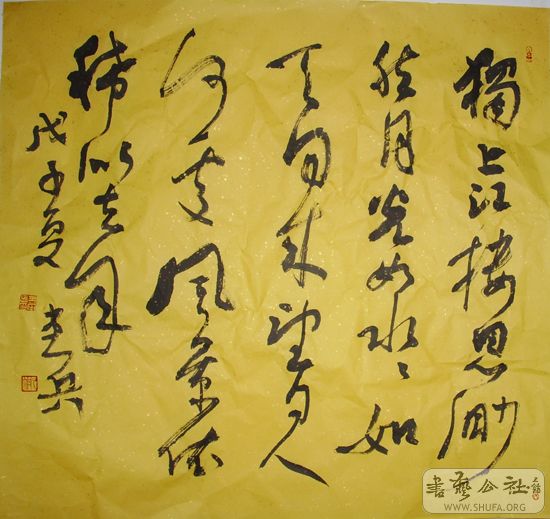 獨上江楼思渺
然月光如水〻如
天同来望月人
何處風景依
稀似去年
戊子夏
書藝公社
WWW.SHUFA.ORG